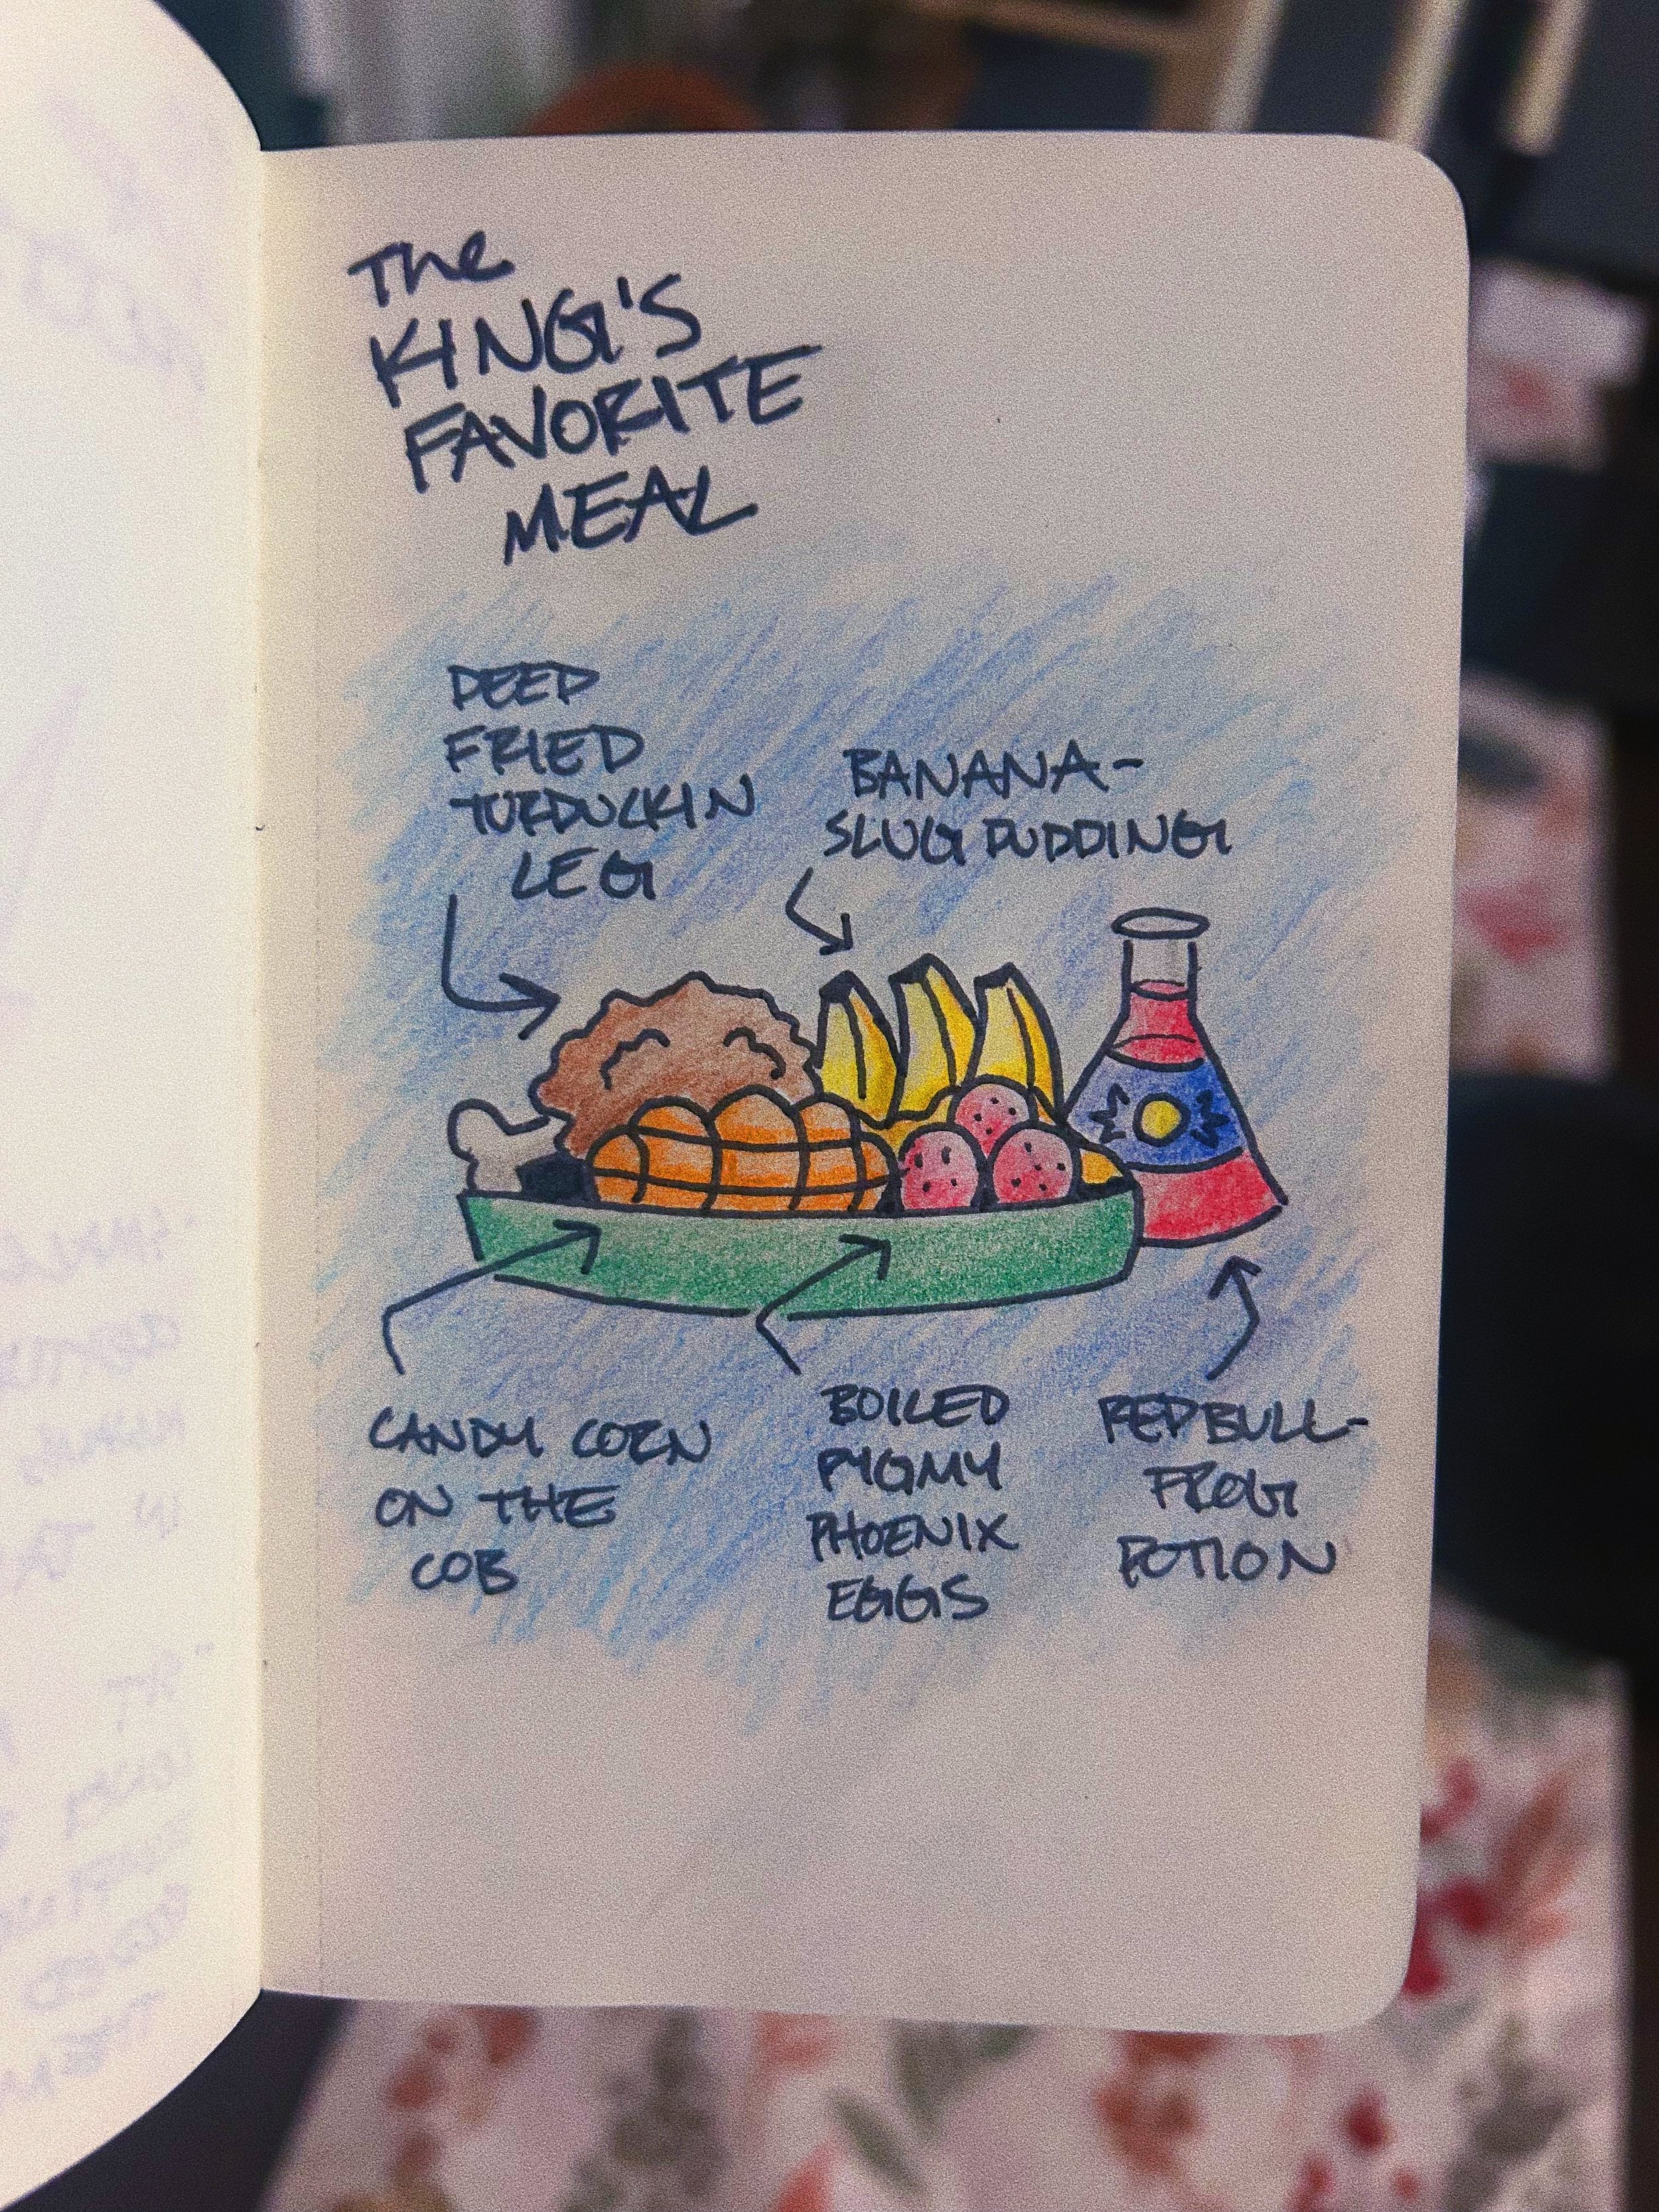 The
KING'S
FAVORITE
MEAL
DEEP
FRIED
TURDUCKIN
LEG
BANANA-
SLUG PUDDING
CANDY CORN
ON THE
COB
BOILED
PYGMY
PHOENIX
EGGS
REDBULL-
FROG
POTION